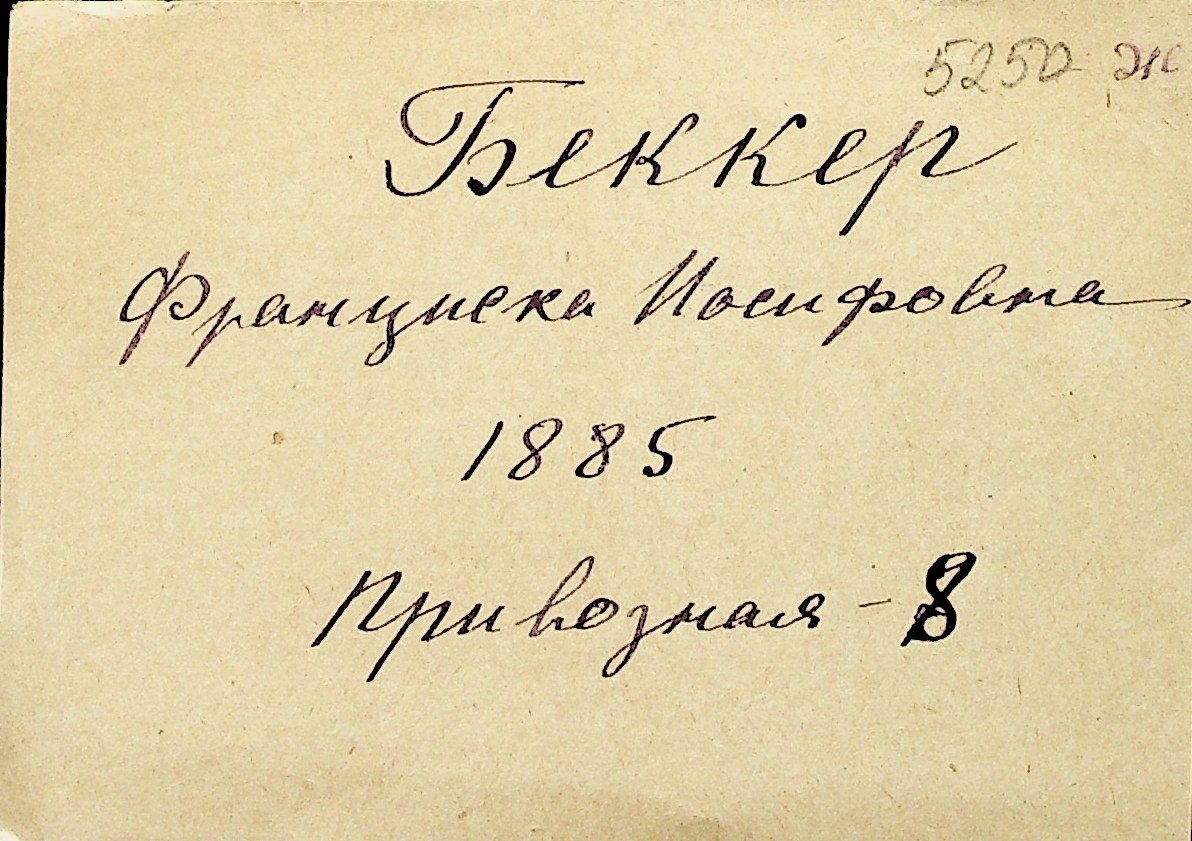 5250 ж
Беккер
Франциска Иосифовна
1885
Привозная - 8